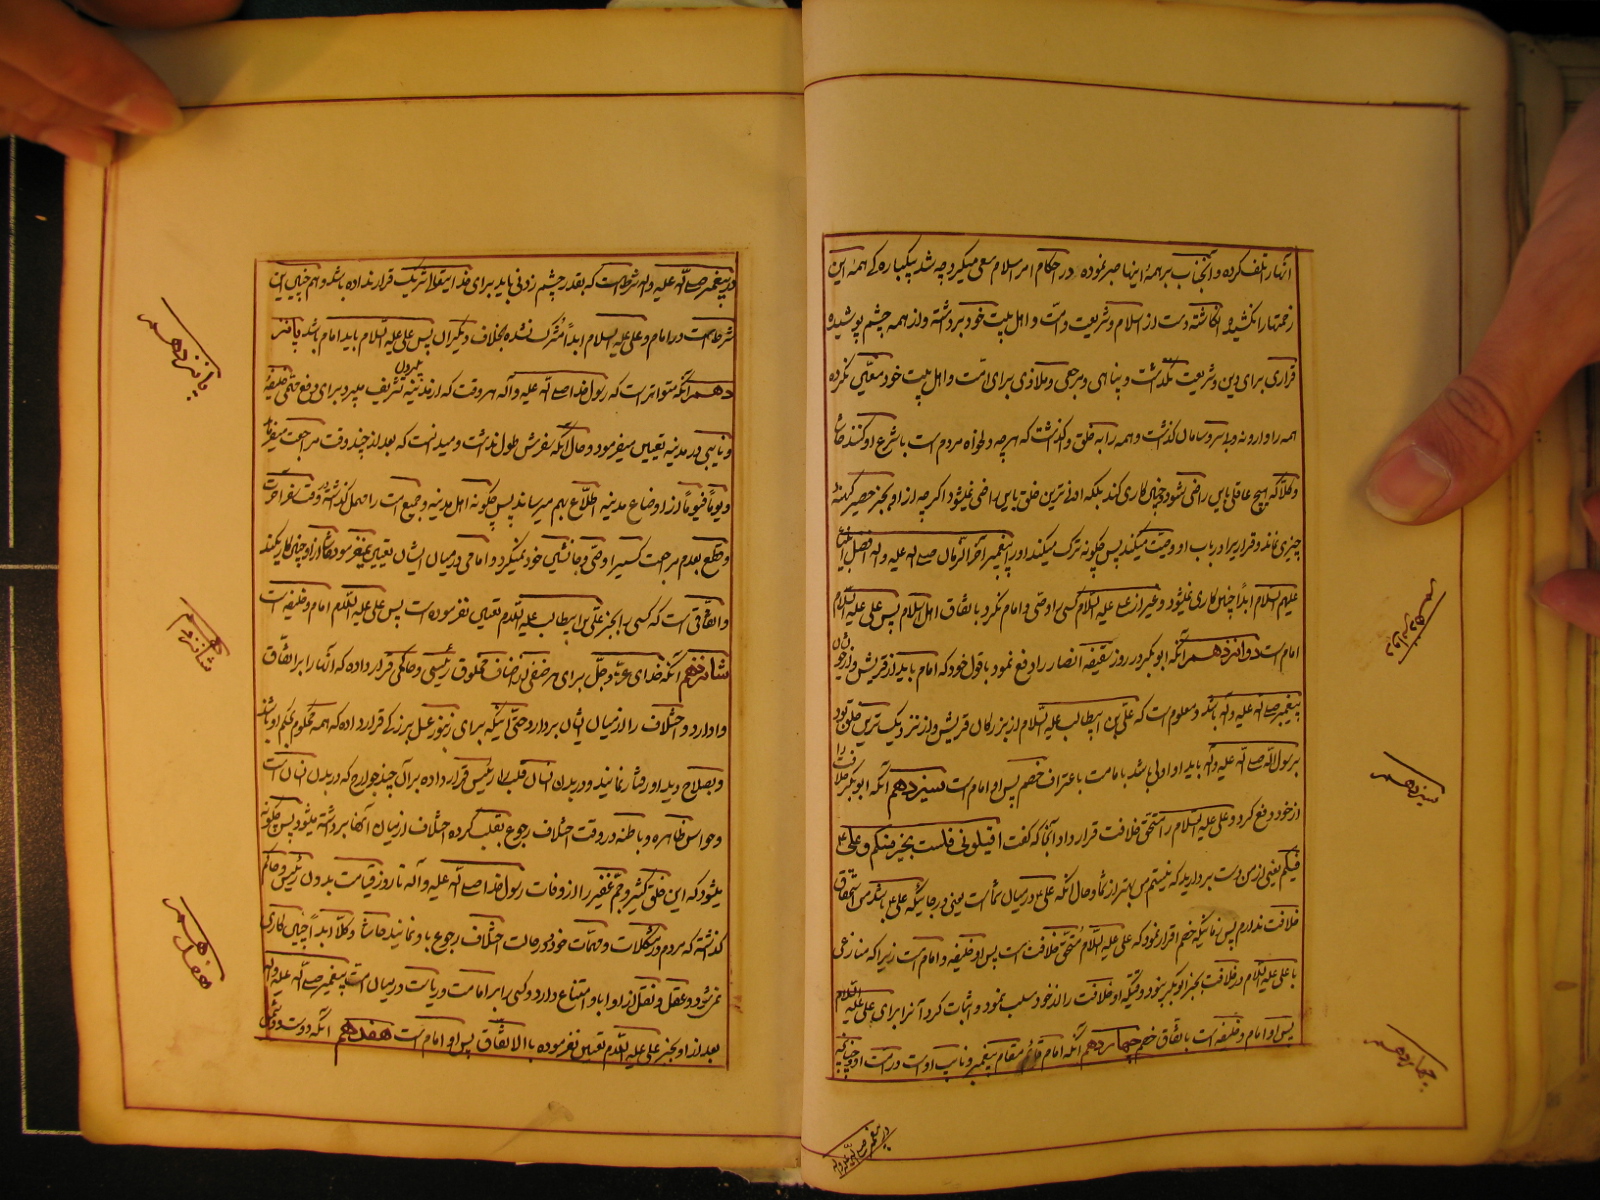 آنها را تلف کرده و آنجناب بر همهٔ اینها صبر نموده در احکام امر اسلام سعی میکرد چه شد یکباره که همهٔ این
زحمتها را نکشیده انگاشته دست از اسلام و شریعت و امت و اهل بیت خود برداشته و از همه چشم پوشیده
قراری برای دین و شریعت نگذشت و پناهی و مرجعی و ملاذی برای امت و اهل بیت خود معیّن نکرده
همه را وارونه و بی سر و سامان گذشت و همه را به خلق واگذشت که هر چه دلخواه مردم است با شرع او کنند حاشا
و کلا که هیچ عاقلی باین راضی نشود و چنین کاری کند بلکه ادنی ترین خلق باین راضی نمیشود اگر چه از او بجز حصیر کهنه
چیزی نماند و قرار بر او در باب او وصیت میکند پس چگونه ترک میکند او را پیغمبر آخر الزمان صلی الله علیه و آله افضل انبیا
علیهم السلام ابداً چنین کاری نمیشود و غیر از علی علیه السلام کسی را وصی و امام نکرد باتفاق اهل اسلام پس علی علیه السلام
امام است دوانزدهم آنکه ابوبکر در روز سقیفه انصار را دفع نمود باقول خود که امام باید از قریش و از خویشان
پیغمبر صلی الله علیه و آله باشد و معلوم است که علی بن ابیطالب علیه السلام از بزرگان قریش و از نزدیکترین خلق بود
برسول الله صلی الله علیه و آله باید او اولی باشد بامامت باعتراف خصم پس او امام است سیزدهم آنکه ابوبکر خلافت را
از خود دفع کرد و علی علیه السلام را مستحق خلافت قرار داد آنجا که گفت اقیلونی فلست بخیر منکم و علی
فیکم یعنی از من دست بردارید که نیستم من بهتر از شما و حال آنکه علی در میان شما است یعنی در جائیکه علی باشد من استحقاق
خلافت ندارم پس زمانیکه خصم اقرار نمود که علی علیه السلام مستحق خلافت است پس او خلیفه و امام است زیرا که منازعی
با علی علیه السلام در خلافت بجز ابوبکر نبود و وقتیکه او خلافت را از خود سلب نمود و اثبات کرد آنرا برای علی علیه السلام
پس او امام و خلیفه است باتفاق خصم چهاردهم آنکه امام قائم مقام پیغمبر و نایب اوست در امت او و چنانچه
دوازدهم
سیزدهم
چهاردهم
در پیغمبر صلی الله علیه و آله
در پیغمبر صلی الله علیه و آله شرط است که بقدر چشم زدنی باید برای خدا اصلا شریک قرار نداده باشد و هم چنین این
شرط است در امام و علی علیه السلام ابداً مشرک نشده بخلاف دیگران پس علی علیه السلام باید امام باشد پانز
دهم آنکه متواتر است که رسول خدا صلی الله علیه و آله هر وقت که از مدینه بیرون تشریف میبرد برای دفع
و نایبی در مدینه تعیین میفرمود و حال آنکه سفرش طول نداشت و میدانست که بعد از چند وقت مراجعت میفرماید
و یوماً فیوماً از اوضاع مدینه اطلاع بهم میرساند پس چگونه اهل مدینه و جمیع امت را مهمل گذشته در وقت سفر آخرت
و قطع بعدم مراجعت کسی را وصی و جانشین خود نمیکرد و امامی در میان ایشان تعیین نمیفرمود حاشا از او چنین کاری کند
و اتفاقی است که کسی را بجز علی بن ابیطالب علیه السلام تعیین نفرموده است پس علی علیه السلام امام و خلیفه است
شانزدهم آنکه خدای عزّ و جلّ برای هر صنفی از اصناف مخلوق رئیسی و حاکمی قرار داده که آنها را بر اتفاق
وادارد و اختلاف را از میان ایشان بردارد حتی اینکه برای زنبور عسل بزرگی قرار داده که همه محکوم بحکم او باشند
و بصلاح دید او رفتار نمایند و در بدن انسان قلب را رئیس قرار داده بر آن چند جوارح که در بدن انسان است
و حواس ظاهره و باطنه در وقت اختلاف رجوع بقلب کرده اختلاف از میان آنها برداشته میشود پس چگونه
میشود که این خلق کثیر و جمّ غفیر را از وفات رسول خدا صلی الله علیه و آله تا روز قیامت بدون رئیس و حاکم
گذشته که مردم در مشکلات و مهمات خود در حالت اختلاف رجوع باو نمایند حاشا و کلا ابداً چنین کاری
نمیشود و عقل و نقل از او ابا و امتناع دارد و کسی را بر امامت و ریاست در میان امت پیغمبر صلی الله علیه و آله
بعد از او بجز علی علیه السلام تعیین نفرموده بالاتفاق پس او امام است هفدهم آنکه دوست و دشمن
پانزدهم
شانزدهم
هفدهم